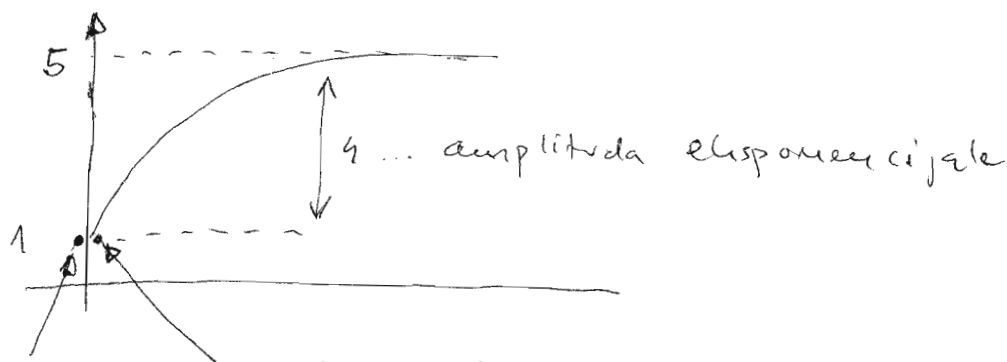 5
4 ... amplituda eksponencijale
1